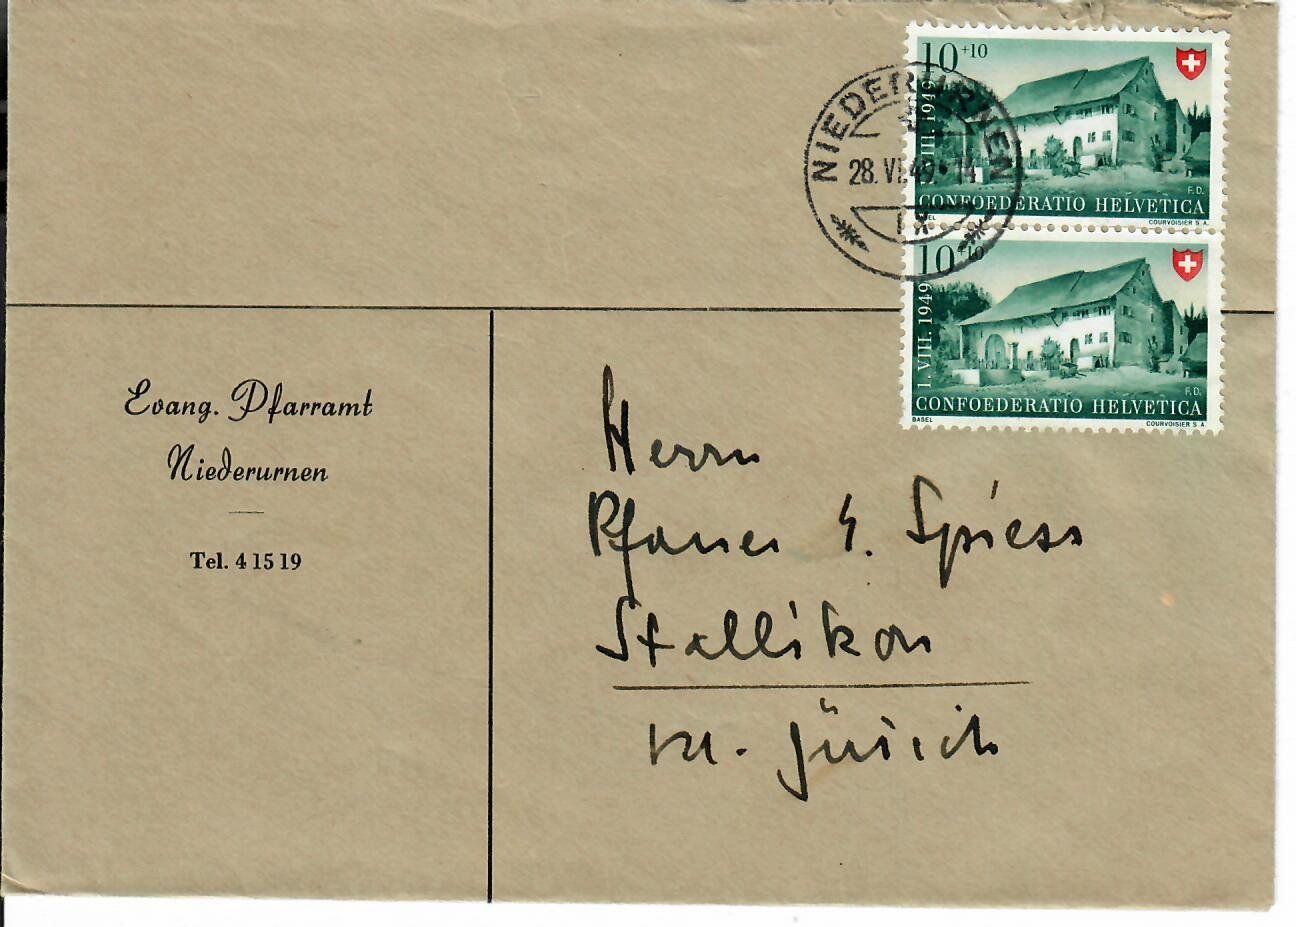 10 +10
1. VIII. 1949
F.D.
CONFOEDERATIO HELVETICA
BASEL COURVOISIER S.A.
NIEDERURNEN
28. VI. 49 • 14
10 +10
1. VIII. 1949
F.D.
CONFOEDERATIO HELVETICA
BASEL COURVOISIER S.A.
Evang. Pfarramt
Niederurnen
Tel. 4 15 19
Herrn
Pfarrer Spiess
Stallikon
Kt. Zürich